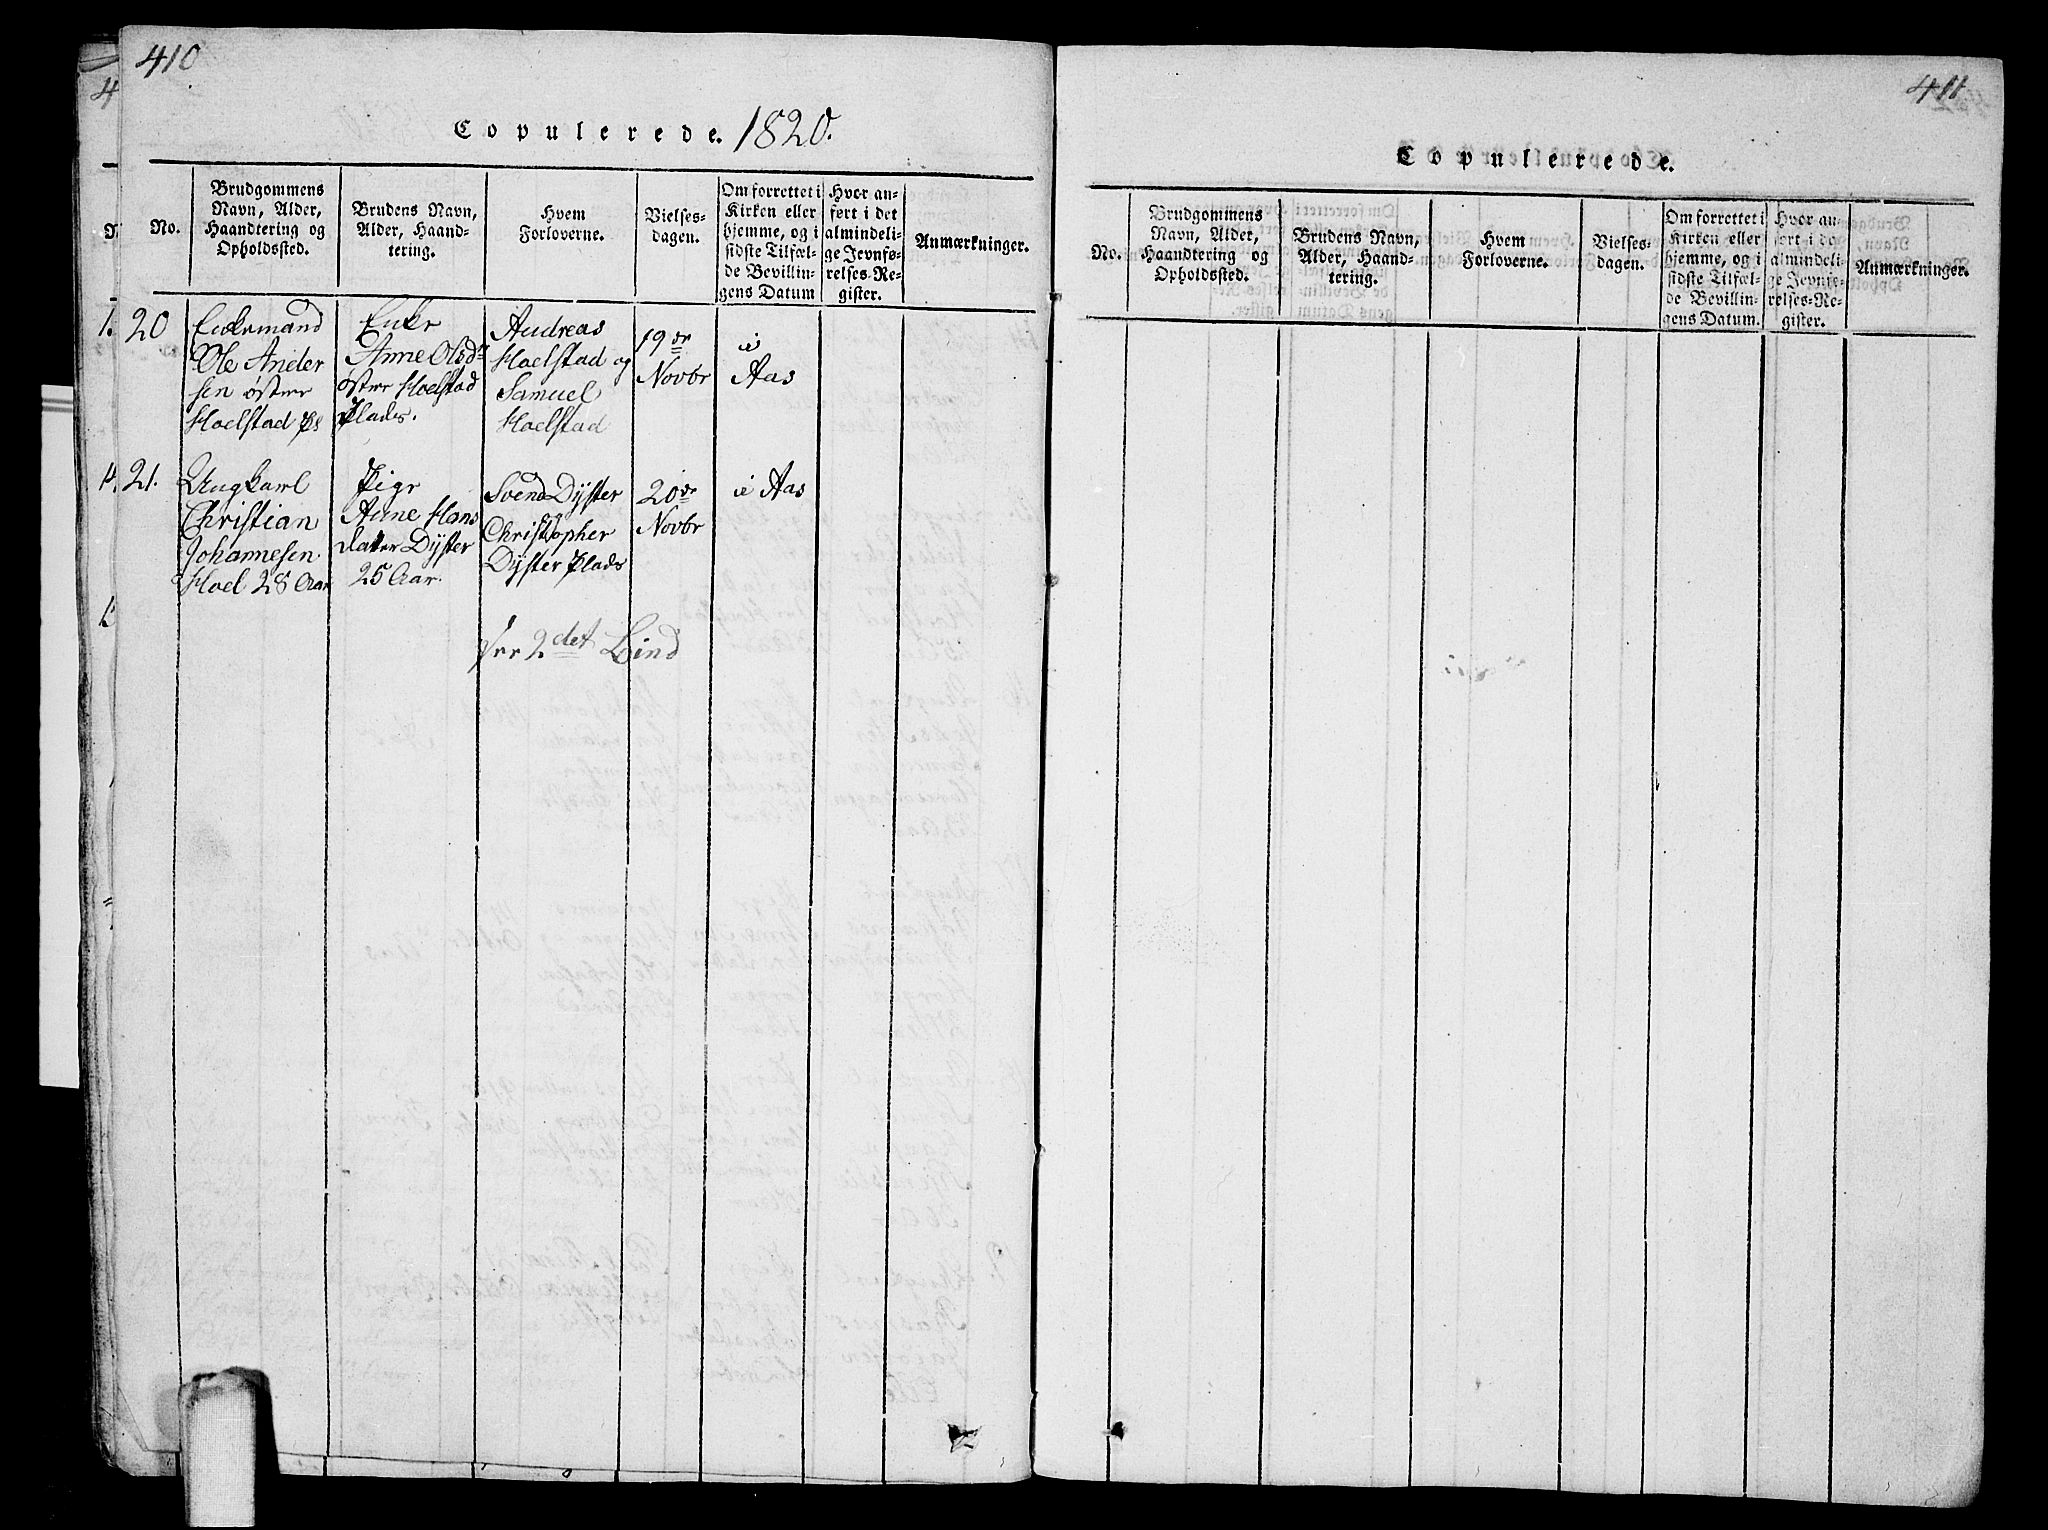 410
Copulerede. 1820.
No.
Brudgommens
Navn, Alder,
Haandtering og
Opholdssted.
Brudens Navn,
Alder, Haand-
tering.
Hvem
Forloverne.
Vielses-
dagen.
Om forrettet i
Kirken eller
hjemme, og i
sidste Tilfæl-
de Bevillin-
gens Datum
Hvor an-
ført i det
almindeli-
ge Jevnfø-
relses-Re-
gister.
Anmærkninger.
20
Enkemand
Ole Ander
sen østre
Hoelstad Pl
Enke
Anne Olsdr
østre Hoelstad
Plads.
Andreas
Hoelstad og
Samuel
Hoelstad
19de
Novbr
i
Aas
21.
Ungkarl
Christian
Johannesen
Hoel 28 Aar
Pige
Anne Hans
datter Dyster
25 Aar.
Svend Dyster
Christopher
Dyster Plads
20de
Novbr
i Aas
See 2det Bind
411
Copulerede.
No.
Brudgommens
Navn, Alder,
Haandtering og
Opholdssted.
Brudens Navn,
Alder, Haand-
tering.
Hvem
Forloverne.
Vielses-
dagen.
Om forrettet i
Kirken eller
hjemme, og i
sidste Tilfæl-
de Bevillin-
gens Datum.
Hvor an-
ført i de
almindeli-
ge Jevnfø-
relses-Re-
gister.
Anmærkninger.